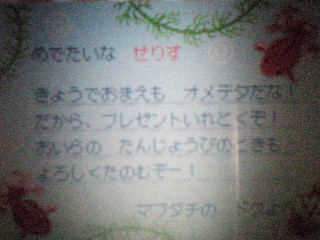 めでたいな　せりす
きょうでおまえも　オメデタだな！
だから、プレゼントいれとくぞ！
おいらの　たんじょうびのときも
よろしくたのむぞー！
マブダチの　ドクより